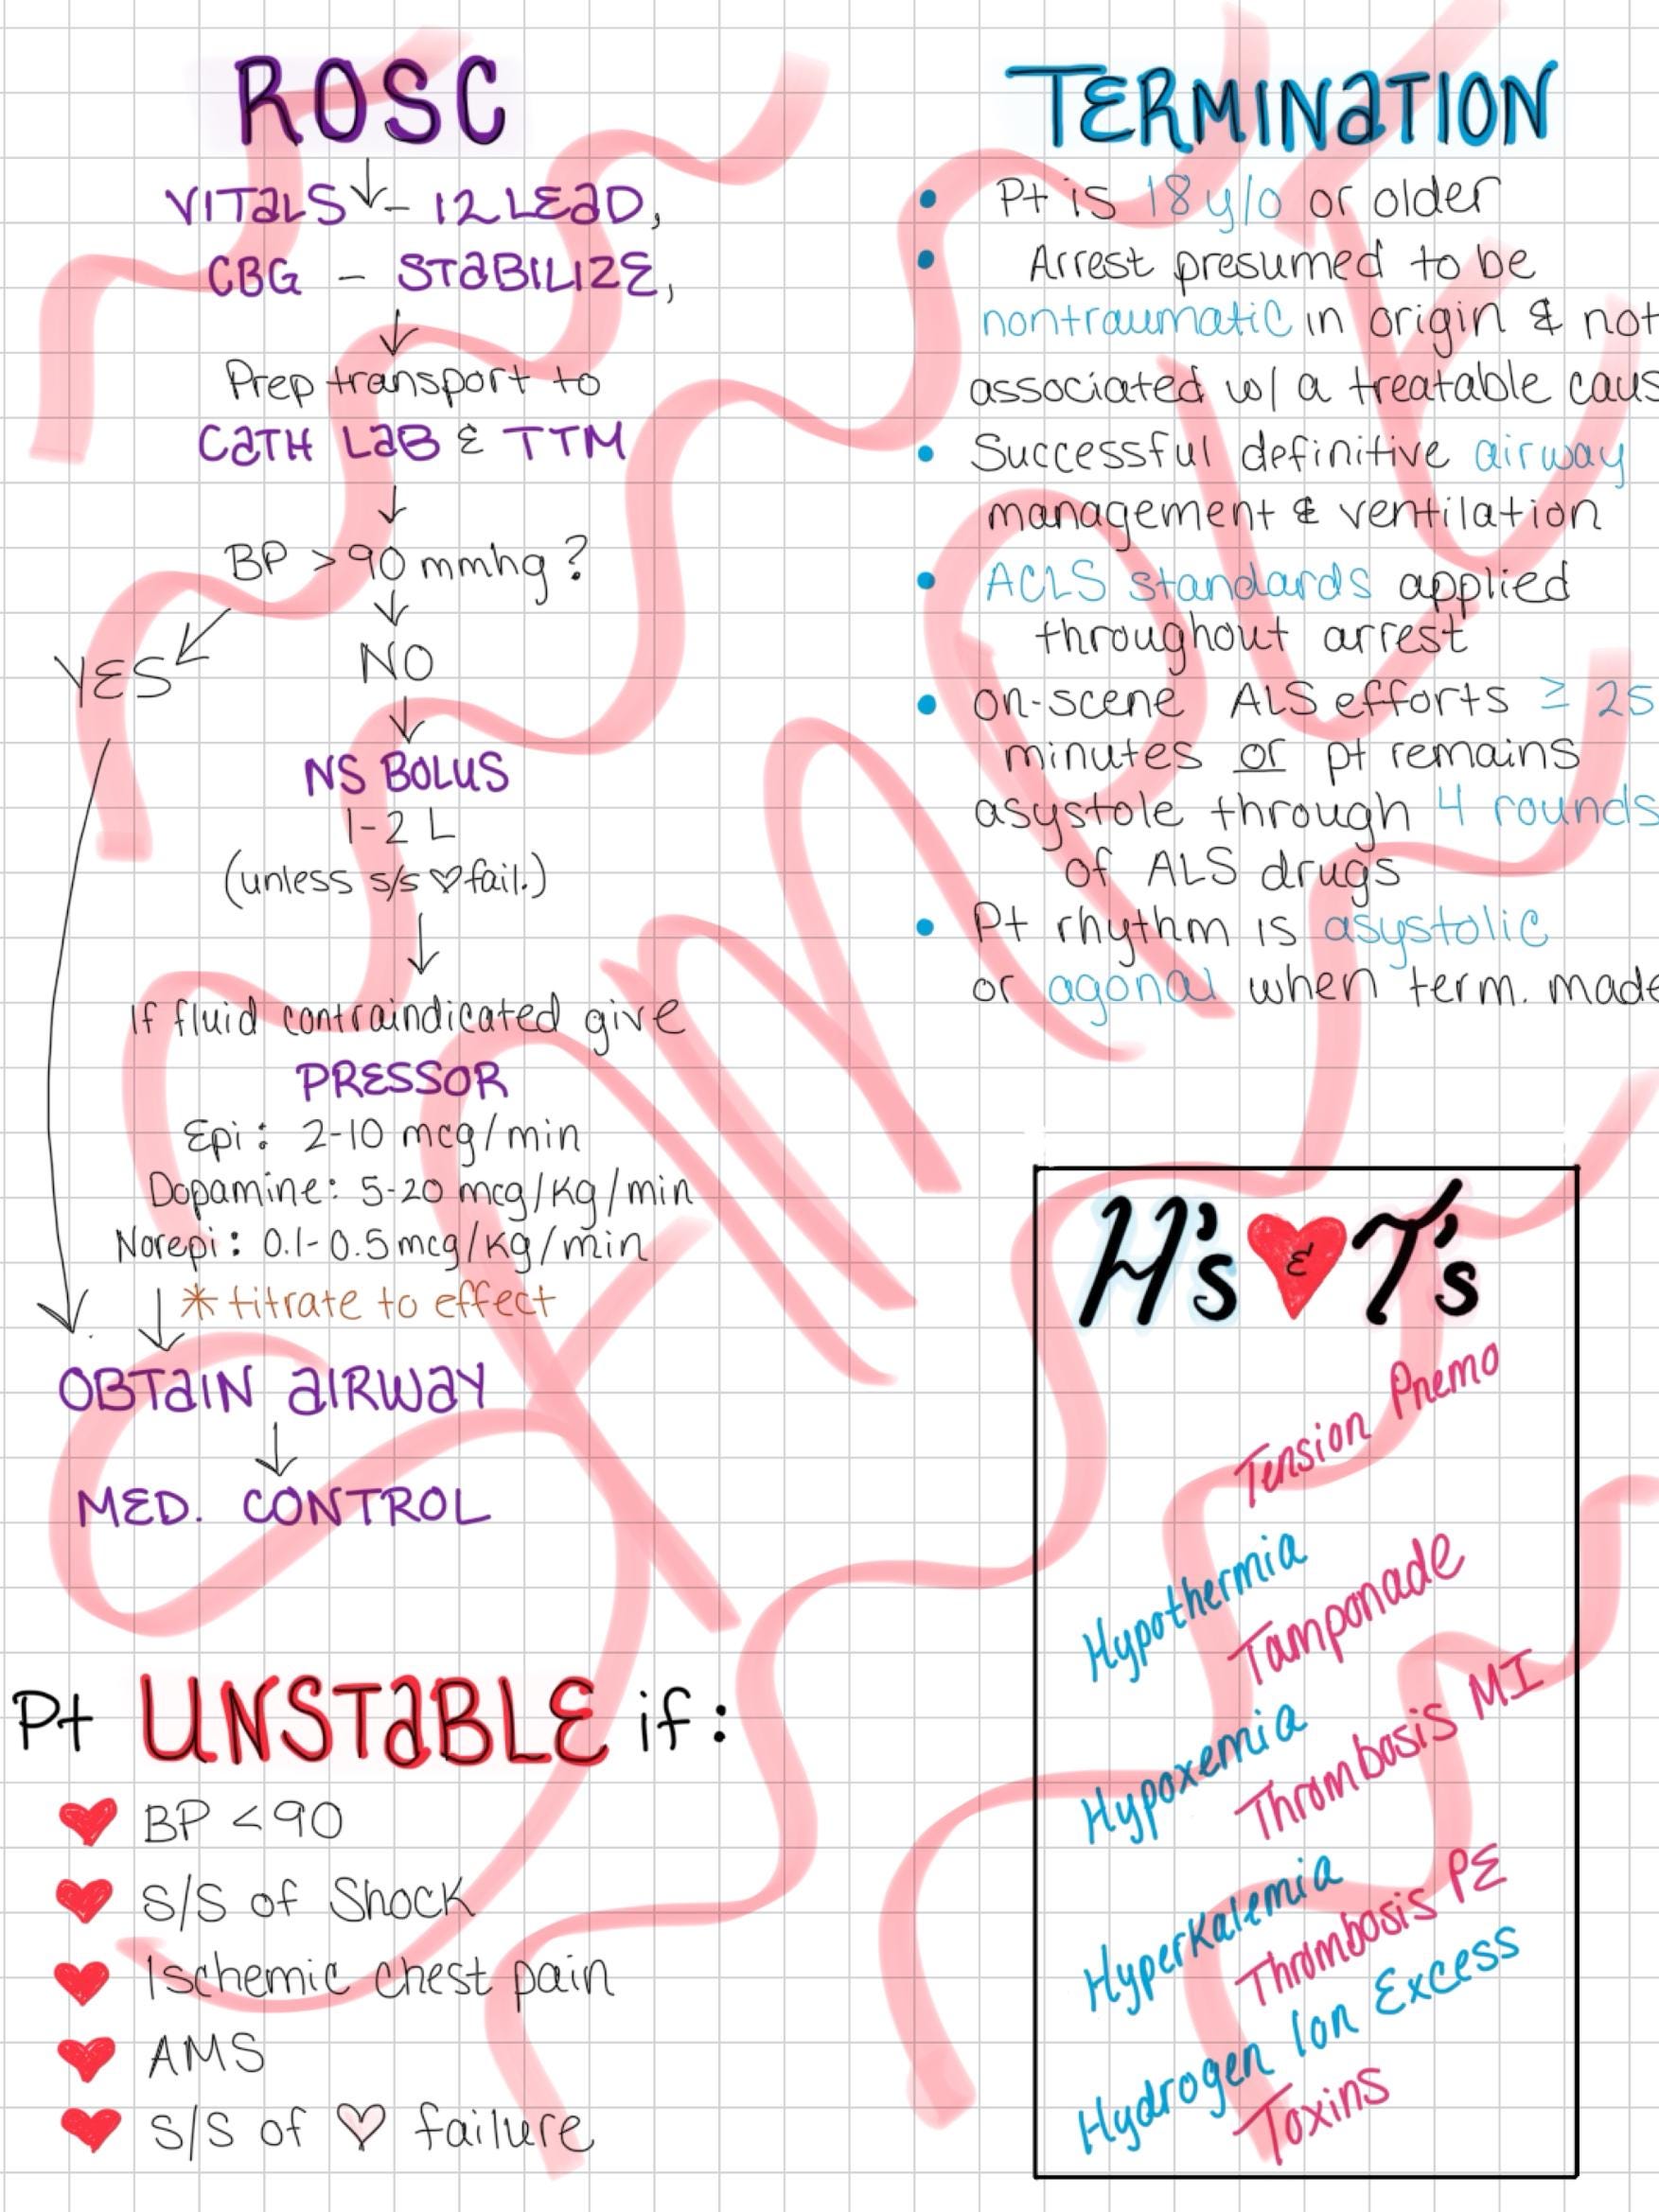 ROSC
VITALS - 12 LEAD,
CBG - STABILIZE,
Prep transport to
CATH LAB & TTM
BP >90 mmhg?
YES
NO
NS BOLUS
1-2 L
(unless s/s ♡ fail.)
If fluid contraindicated give
PRESSOR
Epi: 2-10 mcg/min
Dopamine: 5-20 mcg/kg/min
Norepi: 0.1-0.5 mcg/kg/min
* titrate to effect
OBTAIN AIRWAY
MED. CONTROL
Pt UNSTABLE if:
BP <90
S/S of Shock
Ischemic chest pain
AMS
S/S of ♡ failure
TERMINATION
• Pt is 18 y/o or older
• Arrest presumed to be
nontraumatic in origin & not
associated w/ a treatable caus
• Successful definitive airway
management & ventilation
• ACLS standards applied
throughout arrest
• on-scene ALS efforts ≥ 25
minutes or pt remains
asystole through 4 rounds
of ALS drugs
• Pt rhythm is asystolic
or agonal when term. made
H's & T's
Tension Pnemo
Hypothermia
Tamponade
Hypoxemia
Thrombosis MI
Hyperkalemia
Thrombosis PE
Hydrogen Ion Excess
Toxins
SAMPLE